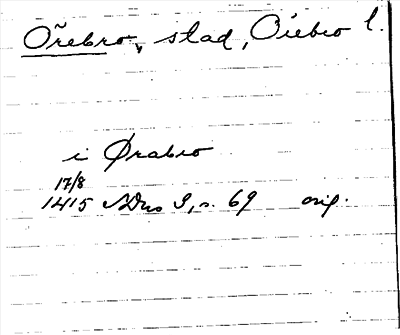 Örebro, stad, Örebro l.
i Ørabro
17/8
1415 SDns 3, s. 69 orig.